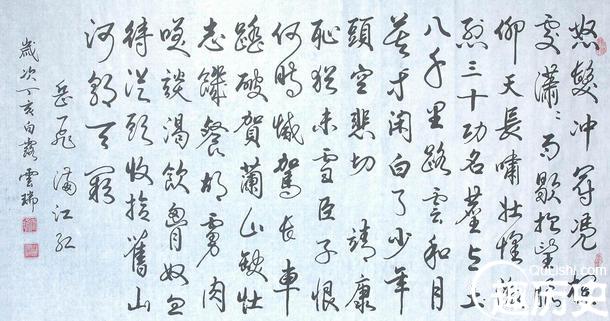 怒髮冲冠憑欄
處瀟〻雨歇抬望眼
仰天長嘯壯懷激
烈三十功名塵与土
八千里路雲和月
莫等闲白了少年
頭空悲切 靖康
恥犹未雪臣子恨
何時滅駕長車
踏破賀蘭山缺壯
志饑餐胡虜肉
笑談渴飲匈奴血
待從頭收拾舊山
河朝天闕
岳飛 滿江紅
歲次丁亥白露 雲瑞
Qulishi.com
趣历史